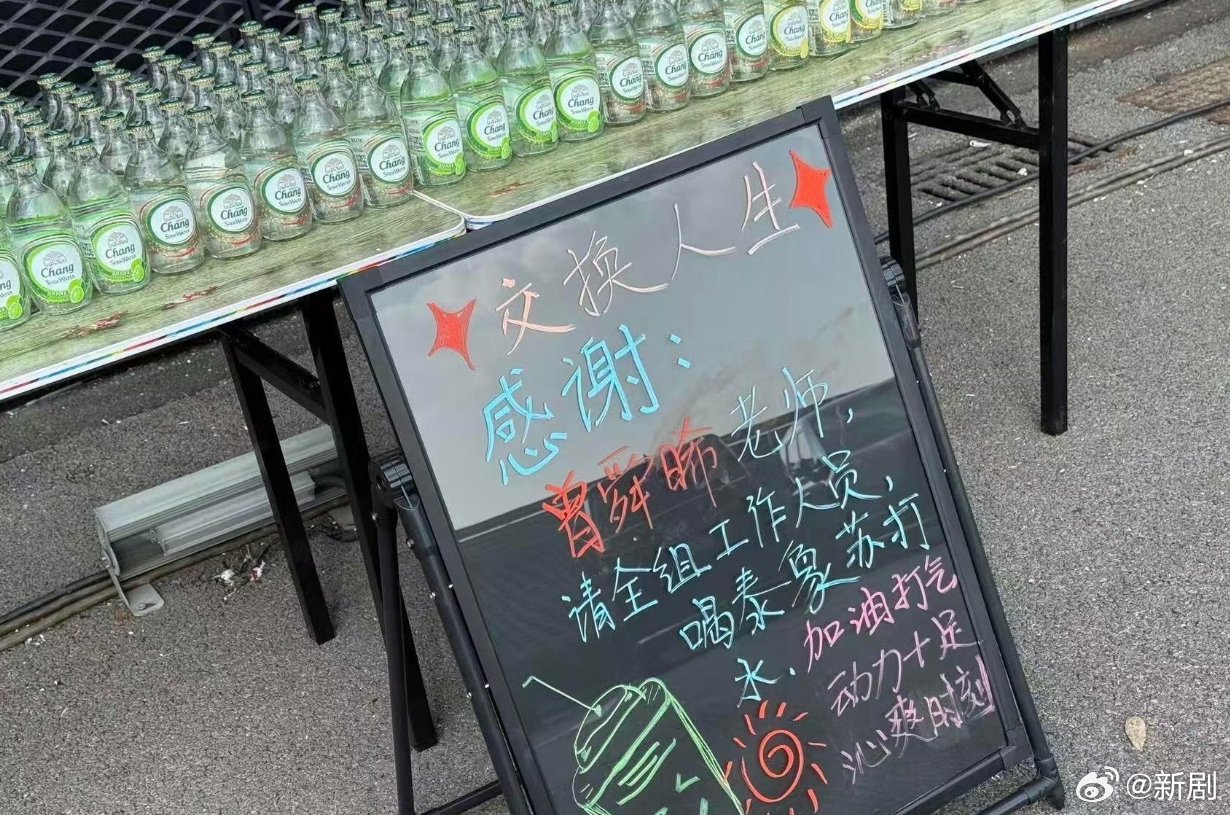 交换人生
感谢：
曾舜晞老师，
请全组工作人员，
喝泰象苏打
水．加油打气
动力十足
沁爽时刻
Chang
SODA WATER
@新剧